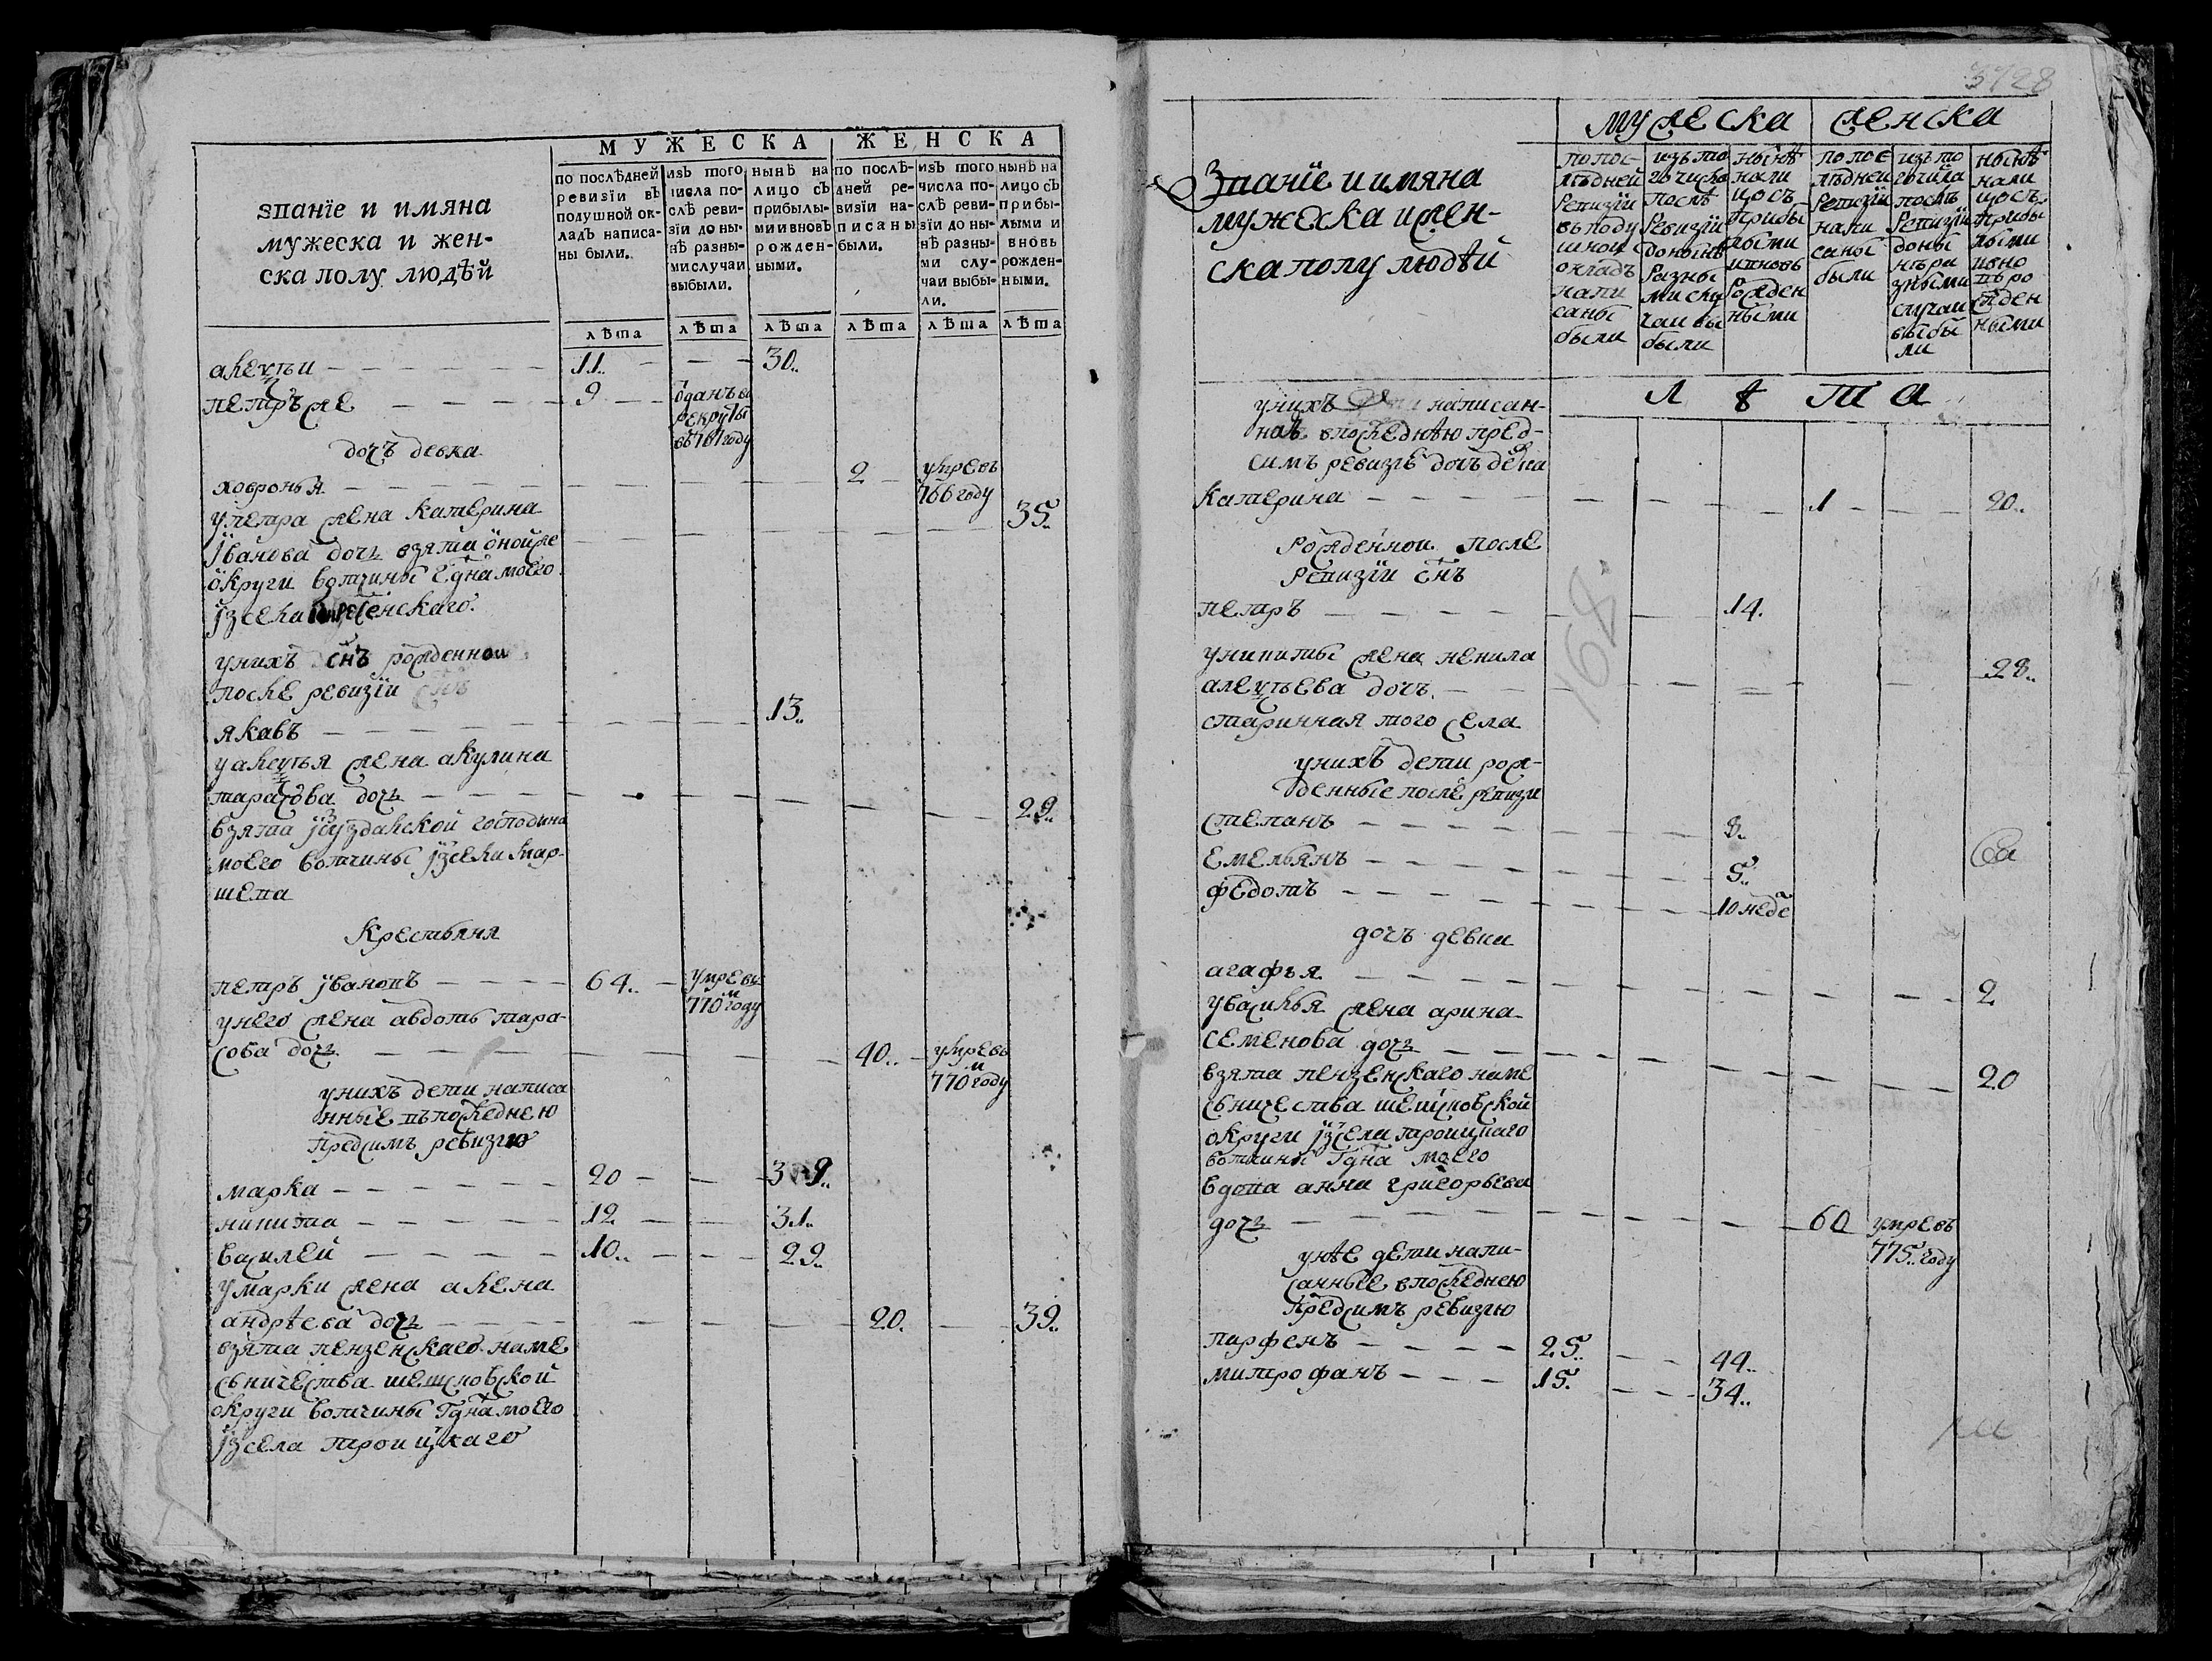 М У Ж Е С К А
Ж Е Н С К А
званїе и имяна
мужеска и жен-
ска полу людѣй
по послѣдней
ревизїи въ
подушной ок-
ладъ написа-
ны были.
изъ того
числа по-
слѣ реви-
зїи до ны-
нѣ разны-
ми случаи
выбыли.
нынѣ на
лицо съ
прибылы-
ми и вновь
рожден-
ными.
по послѣ-
дней ре-
визїи на-
писаны
были.
изъ того
числа по-
слѣ реви-
зїи до ны-
нѣ разны-
ми слу-
чаи выбы-
ли.
нынѣ на
лицо съ
прибы-
лыми и
вновь
рожден-
ными.
лѣта лѣта лѣта лѣта лѣта лѣта
алексѣи 11.. 30..
петръ же 9 ѿданъ въ
рекруты
въ 767 году
дочь девка
ховронья 2 умре въ
766 году
у петра жена катерина
іванова дочь взята оной же 35..
округи вотчины гдна моего
ізсела
у нихъ снъ рожденнои
после ревизїи
яковъ 13..
жена акулина
тарасова дочь 29..
взята ісуздалской господина
моего вотчины ізсела мар-
шева
Крестьяня
петръ івановъ 64.. умре въ
770м году
у него жена авдотья тара-
сова дочь 40.. умре въ
770м году
у нихъ дети написа
нные въ последнею
предсимъ ревизию
марка 20 39..
никита 12. 31..
василей 10.. 29..
у марки жена алена
андрѣева дочь 20. 39..
взята пензенскаго наме
сничества шешковской
округи вотчины гдна моего
ізсела троицкаго
3728
мужеска женска
Званїе и имяна
мужеска и жен-
ска полу людѣй
по пос-
лѣдней
ревизїи
въ поду
шной
окладъ
напи
саны
были
изъ то
го числа
послѣ
ревизїи
до нынѣ
разны
ми слу
чаи вы
были
нынѣ
нали
цо съ
прибы
лыми
и вновь
рожден
ными
по пос
лѣдней
ревизїи
напи
саны
были
изъ то
го числа
послѣ
ревизїи
до ны
нѣ ра
зными
случаи
выбы
ли
нынѣ
нали
цо съ
прибы
лыми
и вно
въ ро
жден
ными
Л ѣ т а
у нихъ написан-
ная в последнѣю пред-
симъ ревизїе дочь девка
катерина 1 20..
рожденнои после
ревизїи снъ
петръ 14.
у никиты жена ненила
алексѣева дочь 28..
старинная того села
у нихъ дети рож-
денные после ревизи
степанъ 8..
емельянъ 5..
федотъ 10 неде
дочь девка
агафья 2
у василья жена арина
семенова дочь 20
взята пензенскаго наме
сничества шешковской
округи ізсела троицкаго
вотчины гдна моего
вдова анна григорьева
дочь 60 умре въ
775.. году
у нѣе дети напи-
санные в последнею
предсимъ ревизию
парфенъ 25.. 44..
митрофанъ 15. 34..
168.